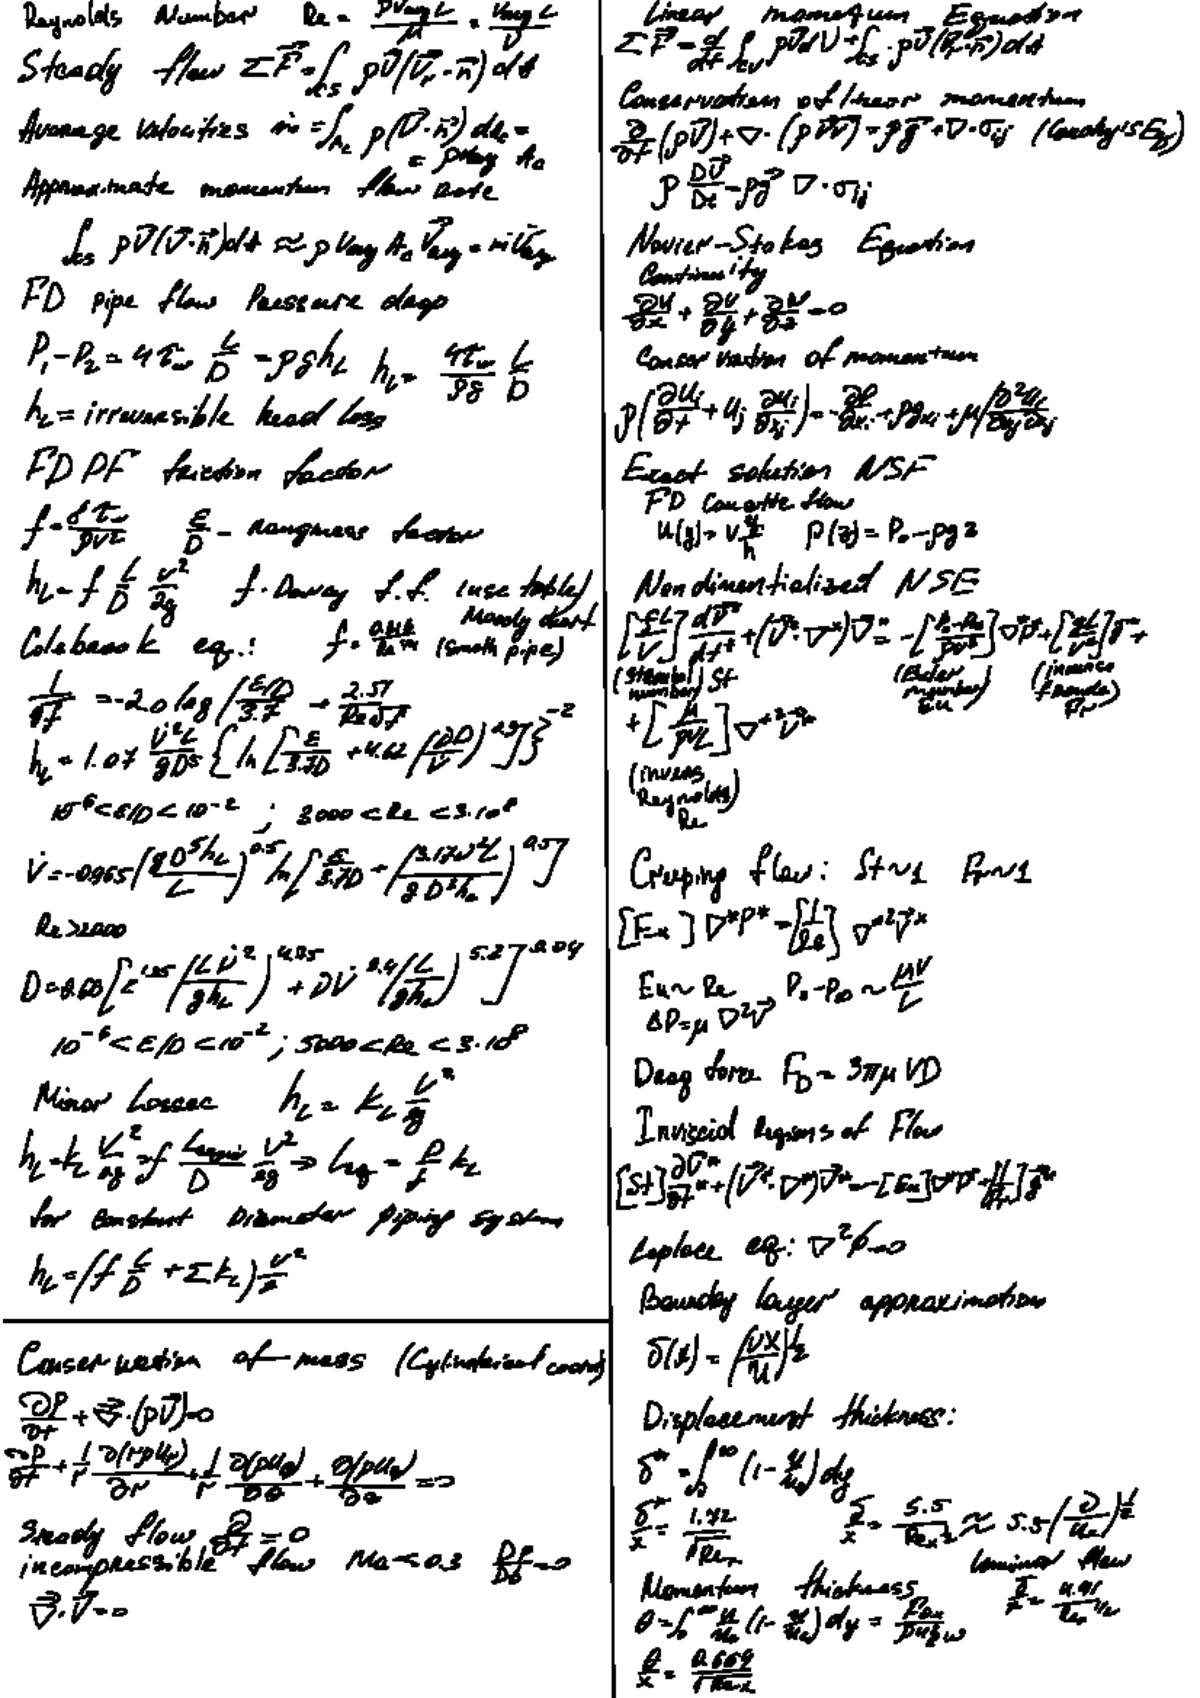 Reynolds Number Re = ρVavg L / μ = Vavg L / ν
Steady flow ΣF⃗ = ∫cs ρV⃗(V⃗r·n⃗) dA
Average Velocities ṁ = ∫Ac ρ(V⃗·n⃗) dAc =
= ρVavg Ac
Approximate momentum flow rate
∫cs ρV⃗(V⃗·n⃗)dA ≈ ρ Vavg Ac V⃗avg = ṁ V⃗avg
FD pipe flow Pressure drop
P₁ - P₂ = 4τw L/D = ρghL hL = 4τw/ρg L/D
hL = irreversible head loss
FD PF friction factor
f = 8τw/ρV² ε/D - roughness factor
hL = f L/D V²/2g f - Darcy f.f. (use table)
Moody chart
Colebrook eq.: (smooth pipe)
1/√f = -2.0 log(ε/D/3.7 + 2.51/Re√f)
hL = 1.07 V̇²L/gD⁵ {ln[ε/3.7D + 4.62(νD/V̇)^0.9]}^-2
10⁻⁶ < ε/D < 10⁻² ; 3000 < Re < 3·10⁸
V̇ = -0.965(gD⁵hL/L)^0.5 ln[ε/3.7D + (3.17ν²L/gD³hL)^0.5]
Re > 2000
D = 0.66[ε^1.25(LV̇²/ghL)^4.75 + νV̇^9.4(L/ghL)^5.2]^0.04
10⁻⁶ < ε/D < 10⁻² ; 5000 < Re < 3·10⁸
Minor Losses hL = KL V²/2g
hL = KL V²/2g = f Lequiv/D V²/2g ⇒ Leq = D/f KL
for constant Diameter piping system
hL = (f L/D + ΣKL) V²/2
Conservation of mass (Cylindrical coord)
∂ρ/∂t + ∇⃗·(ρV⃗)=0
∂ρ/∂t + 1/r ∂(rρur)/∂r + 1/r ∂(ρuθ)/∂θ + ∂(ρuz)/∂z = 0
Steady flow ∂/∂t = 0
incompressible flow Ma < 0.3 Dρ/Dt = 0
∇⃗·V⃗=0
Linear momentum Equation
ΣF⃗ = d/dt ∫CV ρV⃗dV + ∫cs ρV⃗(V⃗r·n⃗)dA
Conservation of linear momentum
∂/∂t(ρV⃗) + ∇·(ρV⃗V⃗) = ρg⃗ + ∇·σij (Cauchy's Eq)
ρ DV⃗/Dt = ρg⃗ ∇·σij
Navier-Stokes Equation
Continuity
∂u/∂x + ∂v/∂y + ∂w/∂z = 0
Conservation of momentum
ρ(∂ui/∂t + uj ∂ui/∂xj) = -∂P/∂xi + ρgxi + μ(∂²ui/∂xj∂xj
Exact solution NSF
FD Couette flow
u(y) = V y/h P(z) = P₀ - ρgz
Nondimentialized NSE
[fL/V] dV⃗*/dt* + (V⃗*·∇*)V⃗* = -[P₀-P∞/ρV²]∇*P* + [gL/V²]g⃗* +
(Strouhal number) St (Euler number) Eu (inverse Froude) Fr
+ [μ/ρVL] ∇*²V⃗*
(invers
Reynolds)
Re
Creeping flow: St~1 Fr~1
[Eu] ∇*P* = [1/Re] ∇*²V⃗*
Eu ~ Re P₀-P∞ ~ μV/L
ΔP = μ ∇²V⃗
Drag force FD = 3πμVD
Inviscid Regions of Flow
[St]∂V⃗*/∂t* + (V⃗*·∇*)V⃗* = -[Eu]∇*P* + [1/Fr²]g⃗*
Laplace eq: ∇²ϕ=0
Boundary layer approximation
δ(x) = (νx/U)^1/2
Displacement thickness:
δ* = ∫₀^∞ (1 - u/u∞) dy
δ*/x = 1.72/√Rex δ/x = 5.5/Rex^1/2 ≈ 5.5(ν/u∞)^1/2
laminar flow
Momentum thickness δ/x = 4.91/Rex^1/2
θ = ∫₀^∞ u/u∞ (1 - u/u∞) dy =
θ/x = 0.664/√Rex